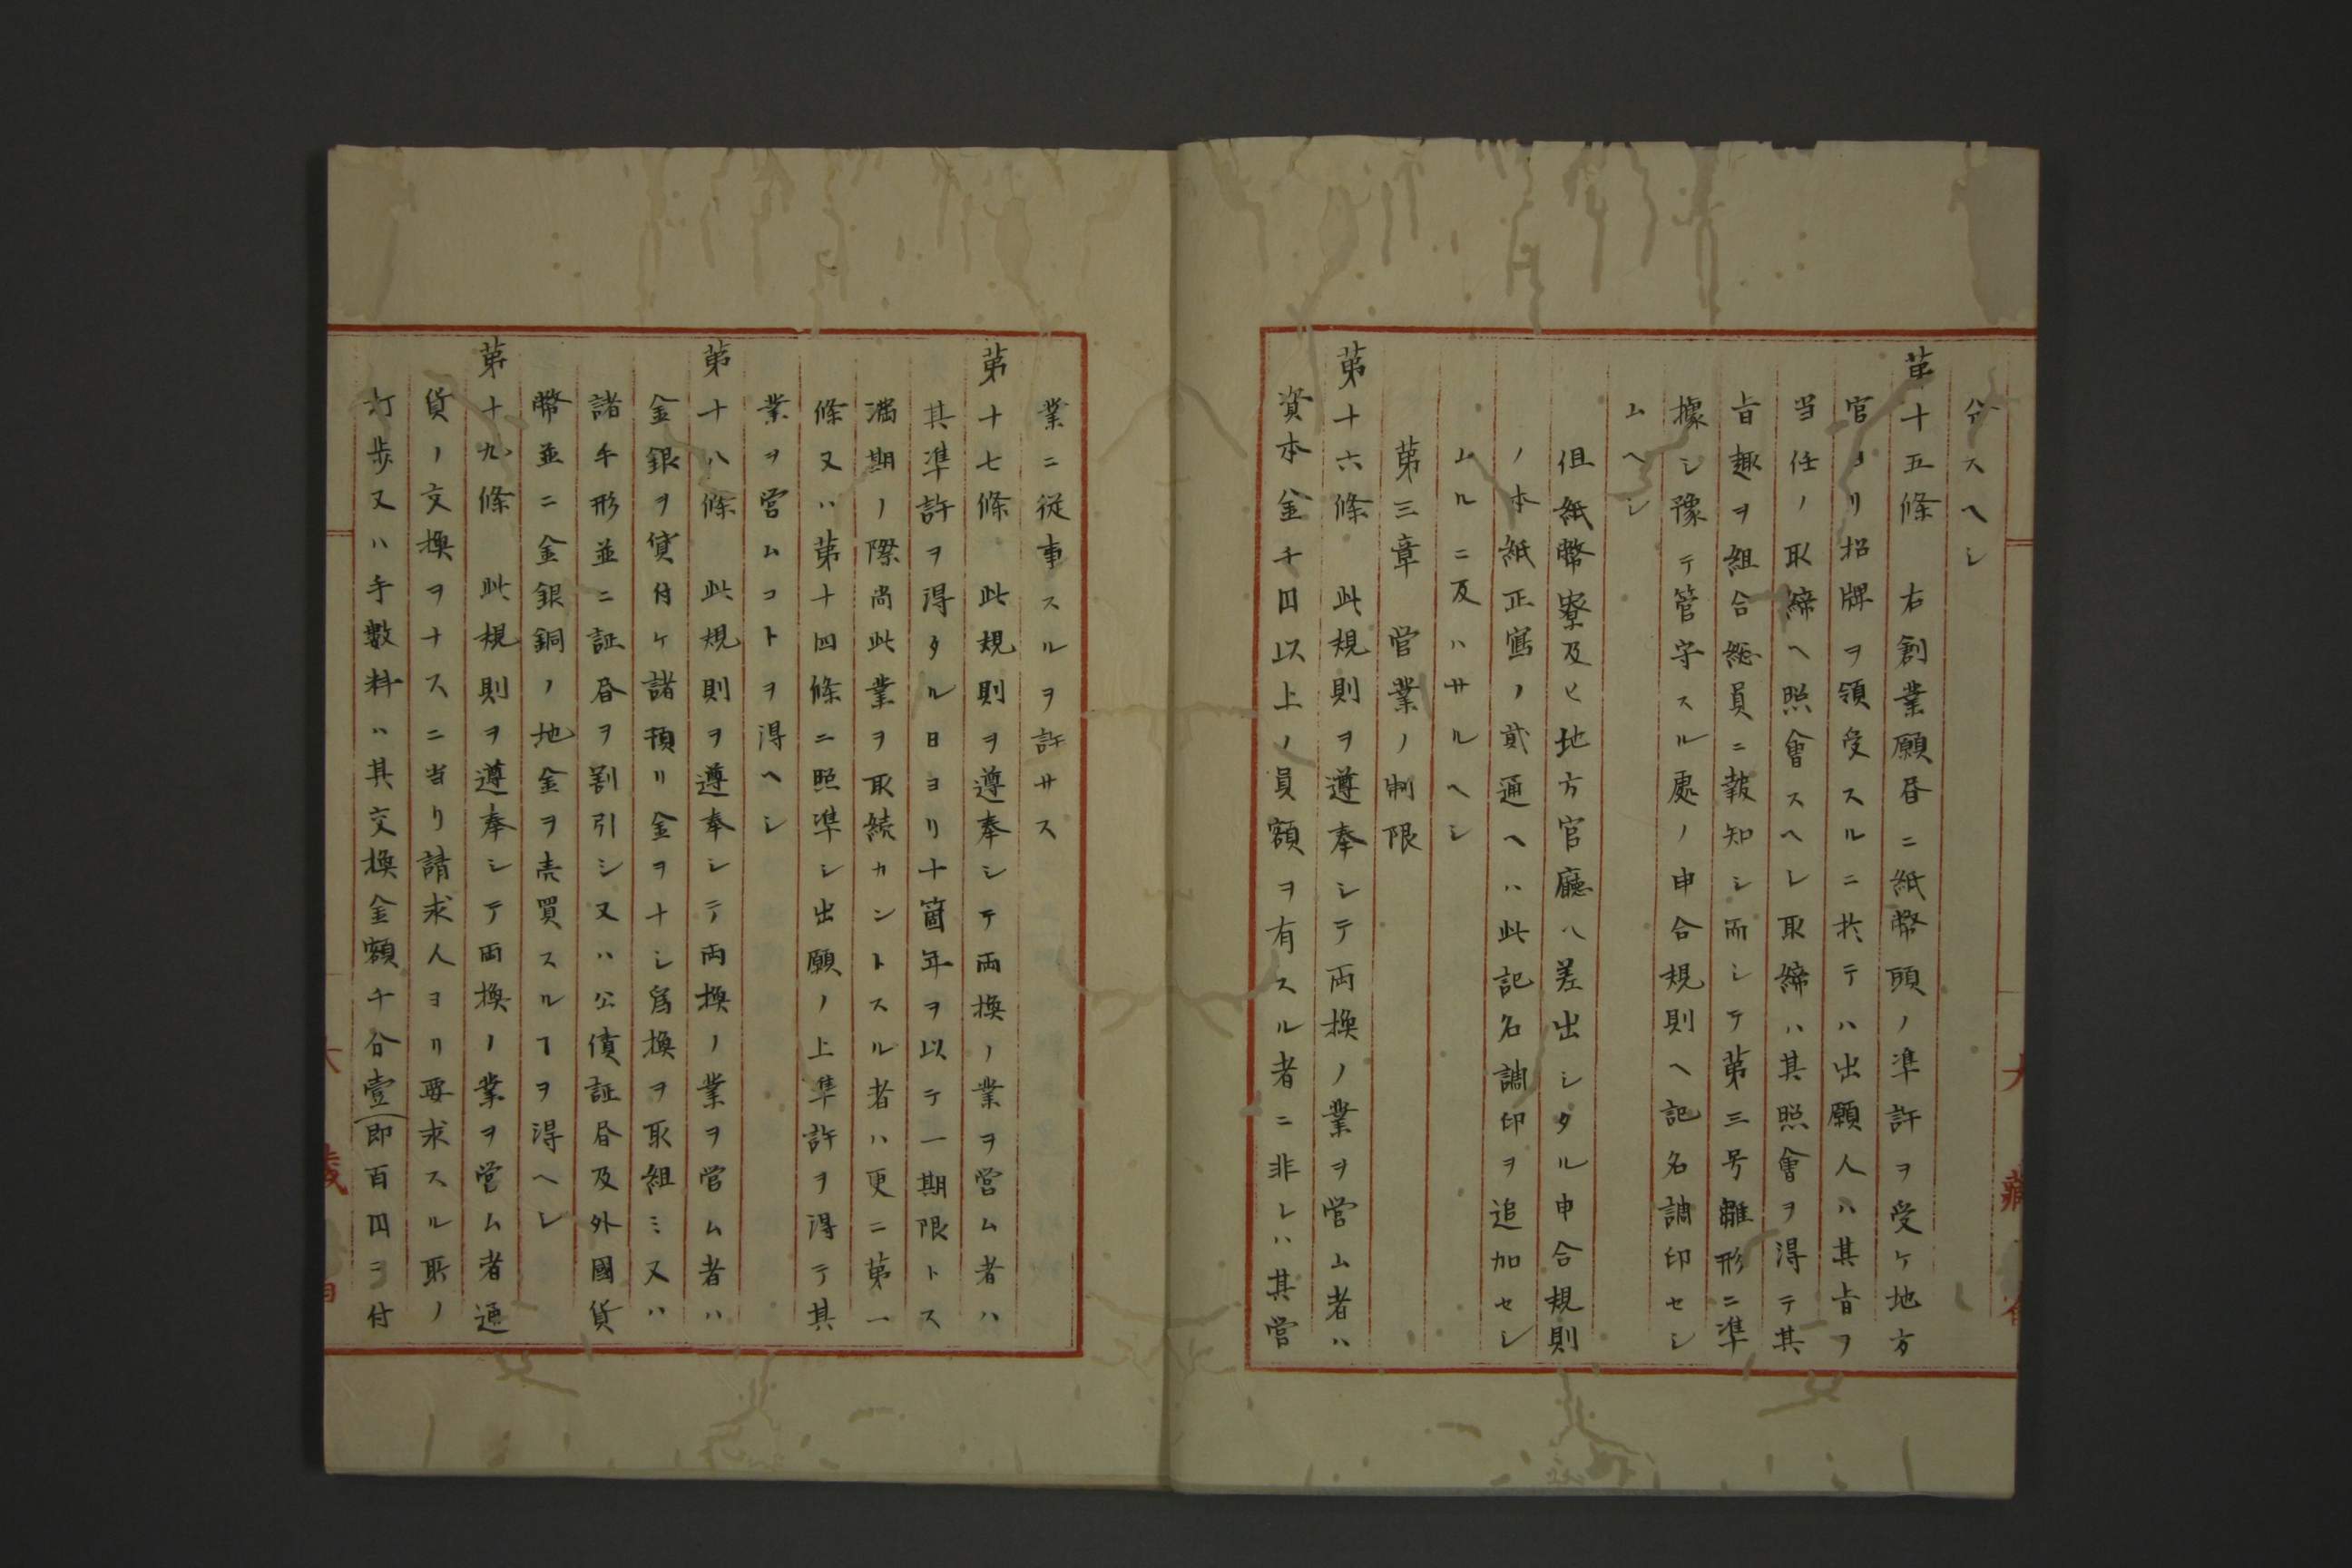 分スヘシ
第十五條　右創業願書ニ紙幣頭ノ準許ヲ受ケ地方
官ヨリ招牌ヲ領受スルニ於テハ出願人ハ其旨ヲ
当任ノ取締ヘ照會スヘシ取締ハ其照會ヲ得テ其
旨趣ヲ組合総員ニ報知シ而シテ第三号雛形ニ準
據シ豫テ管守スル處ノ申合規則ヘ記名調印セシ
ムヘシ
但紙幣寮及ヒ地方官廳ヘ差出シタル申合規則
ノ本紙正寫ノ貳通ヘハ此記名調印ヲ追加セシ
ムルニ及ハサルヘシ
第三章　営業ノ制限
第十六條　此規則ヲ遵奉シテ両換ノ業ヲ営ム者ハ
資本金千円以上ノ員額ヲ有スル者ニ非レハ其営
業ニ従事スルヲ許サス
第十七條　此規則ヲ遵奉シテ両換ノ業ヲ営ム者ハ
其準許ヲ得タル日ヨリ十箇年ヲ以テ一期限トス
満期ノ際尚此業ヲ取続カントスル者ハ更ニ第一
條又ハ第十四條ニ照準シ出願ノ上準許ヲ得テ其
業ヲ営ムコトヲ得ヘシ
第十八條　此規則ヲ遵奉シテ両換ノ業ヲ営ム者ハ
金銀ヲ貸付ケ諸預リ金ヲナシ為換ヲ取組ミ又ハ
諸手形並ニ証書ヲ割引シ又ハ公債証書及外國貨
幣並ニ金銀銅ノ地金ヲ売買スルヿヲ得ヘシ
第十九條　此規則ヲ遵奉シテ両換ノ業ヲ営ム者通
貨ノ交換ヲナスニ当リ請求人ヨリ要求スル所ノ
打歩又ハ手數料ハ其交換金額千分壹（即百円ニ付
大藏省